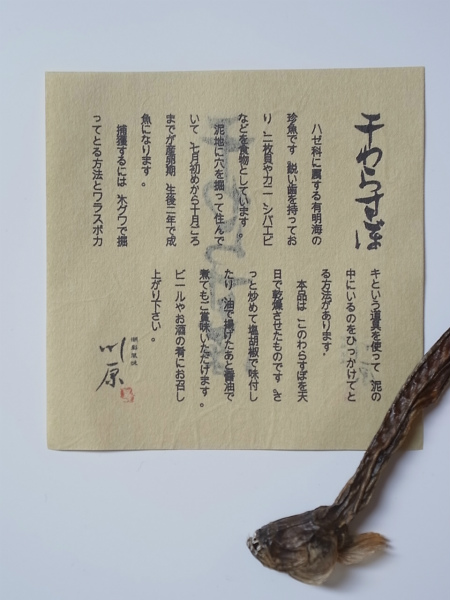 干わらすぼ
ハゼ科に属する有明海の
珍魚です。鋭い歯を持ってお
り、二枚貝やカニ、シバエビ
などを食物としています。
泥地に穴を掘って住んで
いて、七月初めから十月ごろ
までが産卵期、生後二年で成
魚になります。
捕獲するには、木グワで掘
ってとる方法とワラスボカ
キという道具を使って、泥の
中にいるのをひっかけてと
る方法があります。
本品は、このわらすぼを天
日で乾燥させたものです。さ
っと炒めて塩胡椒で味付し
たり、油で揚げたあと醤油で
煮てもご賞味いただけます。
ビールやお酒の肴にお召し
上がり下さい。
川原